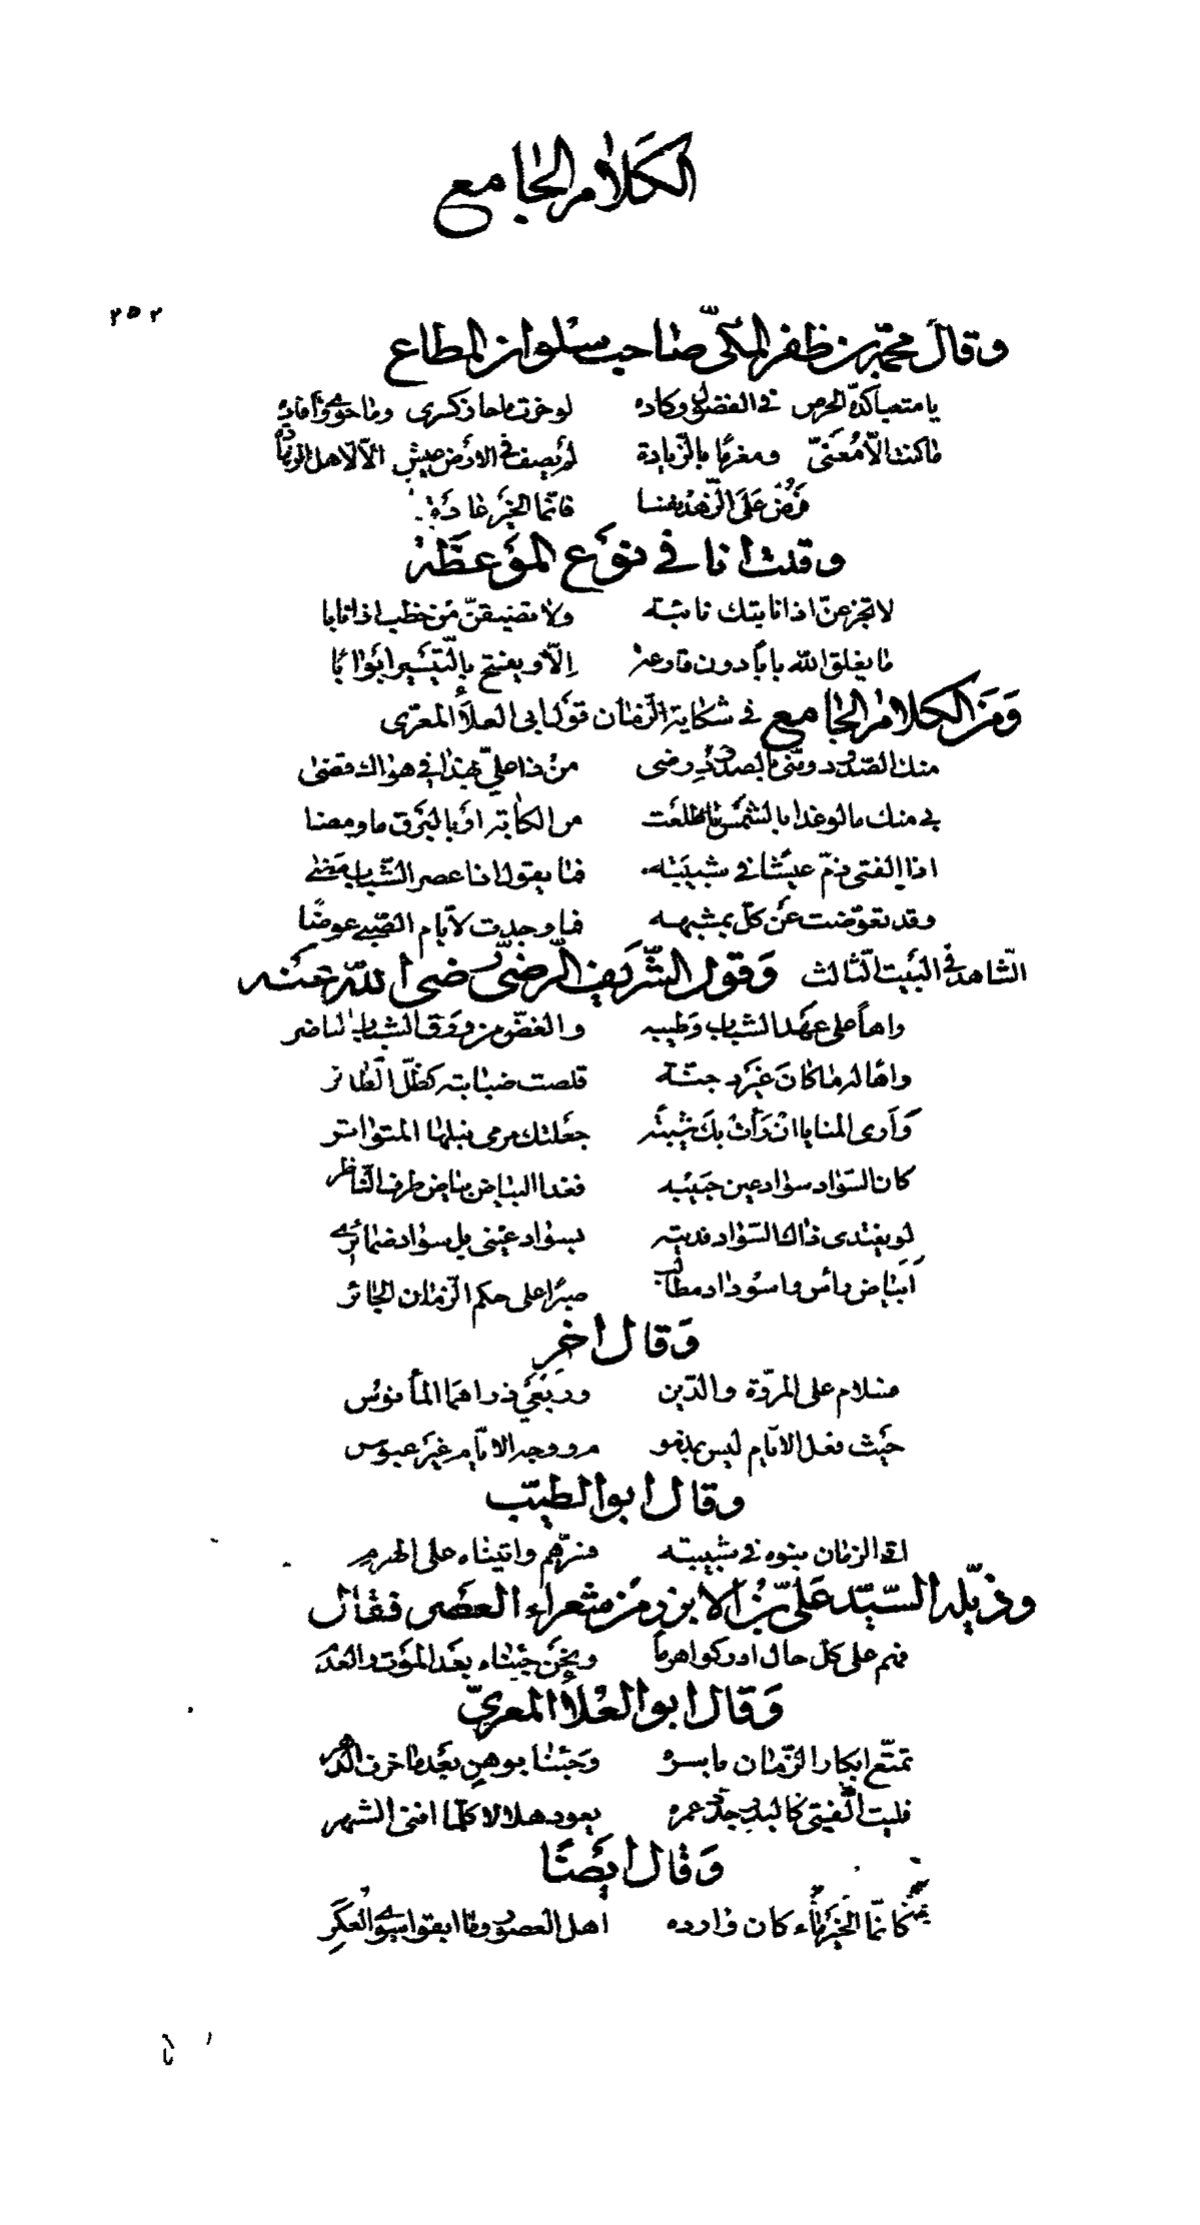 الكلام الجامع
٢٥٢
وقال محمّد بن ظفر المكىّ صاحب سلوان المطاع
يا متعبا كدّه الحرص في الفضول وكاده لو حزت ما حاز كسرى وما حوى وأفاده
ما كنت الّا مُعَنىّ ومغرمًا بالزّيادة لم يصف في الارض عيش الّا لاهل الزهاده
فَرُض عَلَى الزّهد نفسا فانّما الخير عاده
وقلت انا في نوع المؤعظة
لا تجزعنّ اذا نابتك نائبة ولا تضيقنّ من خطب اذا نابا
ما يغلق الله بابًا دون قارعه الّا ويفتح بالتّيسير ابوابًا
وَمِنَ الكلام الجامع في شكاية الزمان قول ابي العلاء المعرّى
منك الصّدود ومنّى بالصدود رضى من ذا علىّ بهذا في هواك قضى
بي منك ما لو غدا بالشمس ما طلعت من الكآبة او بالبرق ما ومضا
اذا الفتى ذمّ عيشا في شبيبته فما يقول اذا عصر الشّباب مضى
وقد تعوّضت عن كلّ بمشبهه فما وجدت لايّام الصّبى عوضًا
الشّاهد في البيت الثّالث وَقول الشّريف الرّضىّ رضى الله عنه
واهاً على عهد الشباب وطيبه والغضّ من ورق الشباب الناضر
واهًا له ما كان غير دجنّة قلصت ضبابته كظلّ الطائر
وَأرى المنايا ان رأت بك شيبة جعلتك مرمى نبلها المتواتر
كان السّواد سواد عين حبيبه فغدا البياض بياض طرف النّاظر
لو يفتدى ذاك السّواد فديته بسواد عينى بل سواد ضمائرى
أبياض رأس واسوداد مطالب صبرًا على حكم الزّمان الجائر
وَقال اخر
سلام على المروّة والدّين وربعى ذراهما المأنوس
حيث فعل الايّام ليس بمذمو م ووجه الايّام غير عبوس
وقال ابو الطيّب
اتى الزمان بنوه في شبيبته فسرّهم واتيناه على الهرم
وذيّله السّيّد علىّ بن الابزر من شعراء العصر فقال
فهم على كل حال ادركوا هرمًا ونحن جئناه بعد الموت والعدم
وَقال ابو العلاء المعرىّ
تمتّع ابكار الزّمان بايسره وجئنا بوهنٍ بعد ما خرف الدّهر
فليت الفتى كالبدر جدّد عمره يعود هلالا كلّما افنى الشهر
وَقال ايضًا
كانّما الخير ماء كان وارده اهل العصور وما ابقوا سوى العكر